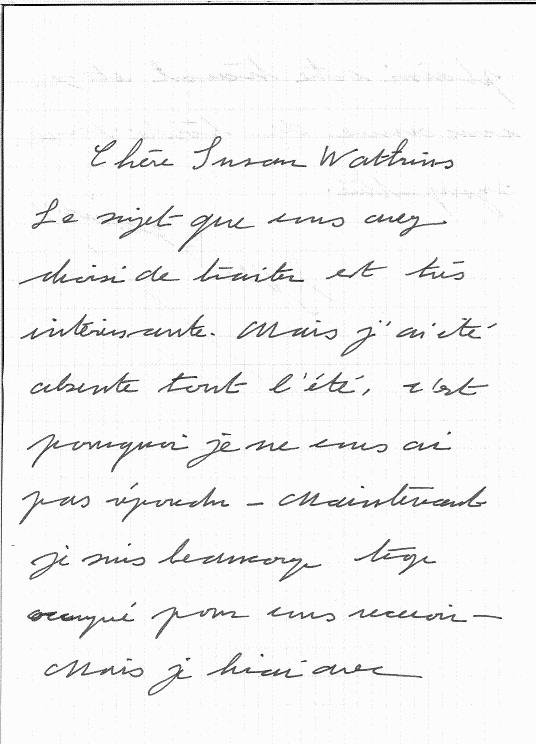 Chère Susan Watkins
Le sujet que vous avez
choisi de traiter est très
intéressante. Mais j'ai été
absente tout l'été, c'est
pourquoi je ne vous ai
pas répondu - Maintenant
je suis beaucoup trop
occupé pour vous recevoir -
Mais je lirai avec